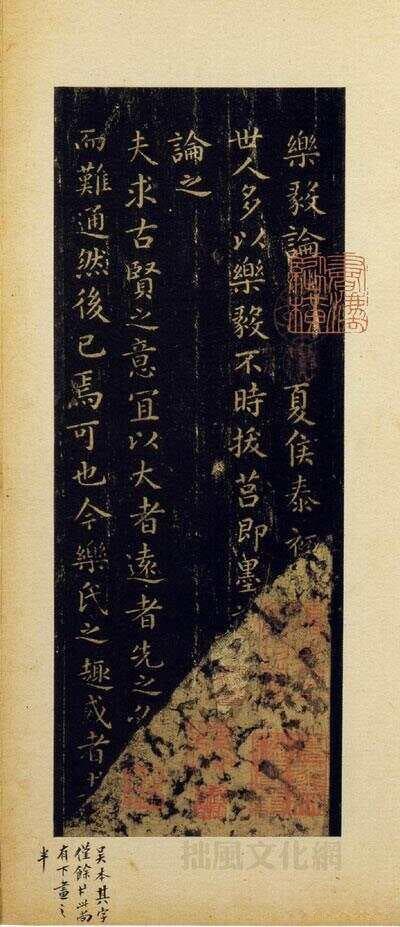 樂毅論 夏侯泰
世人多以樂毅不時拔莒即墨
論之
夫求古賢之意宜以大者遠者先之
而難通然後已焉可也今樂氏之趣或者
吳本其字
僅餘 此尚
有下畫之
半
拙風文化網